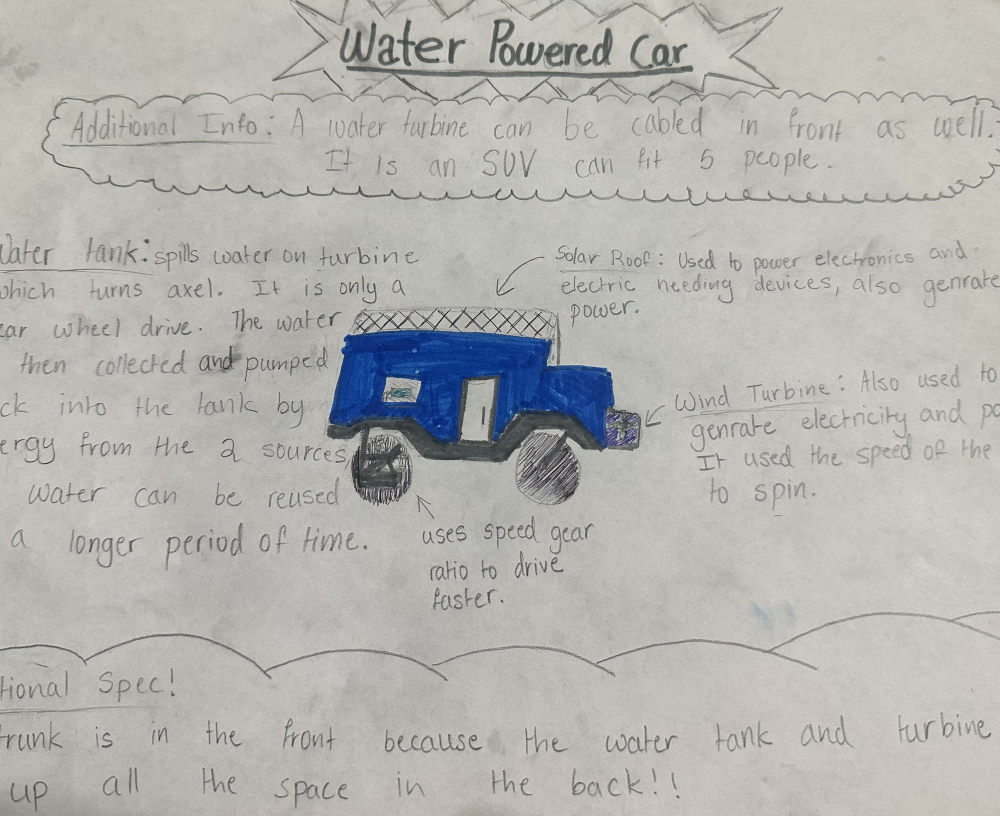 Water Powered Car
Additional Info: A water turbine can be cabled in front as well.
It is an SUV can fit 5 people.
Water tank: spills water on turbine
which turns axel. It is only a
ear wheel drive. The water
then collected and pumped
ck into the tank by
ergy from the 2 sources
water can be reused
a longer period of time.
Solar Roof: Used to power electronics and
electric needing devices, also genrate
power.
Wind Turbine: Also used to
genrate electricity and po
It used the speed of the
to spin.
uses speed gear
ratio to drive
faster.
tional Spec!
trunk is in the front because the water tank and turbine
up all the space in the back!!